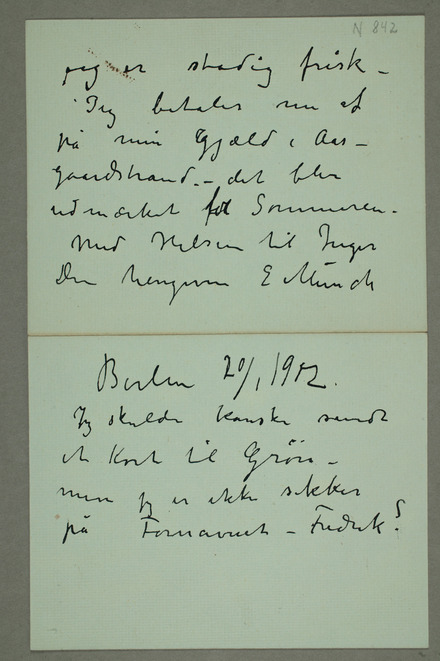 N 842
jeg er stadig frisk –
Jeg betaler nu af
på min Gjæld i Aas–
gaardstrand. – det blir
udmærket til Sommeren –
Med Hilsen til Inger
Din hengivne E Munch
Berlin 20/1 1902.
Jeg skulde kanske sendt
et Kort til Grøn –
men jeg er ikke sikker
på Fornavnet – Fredrik?